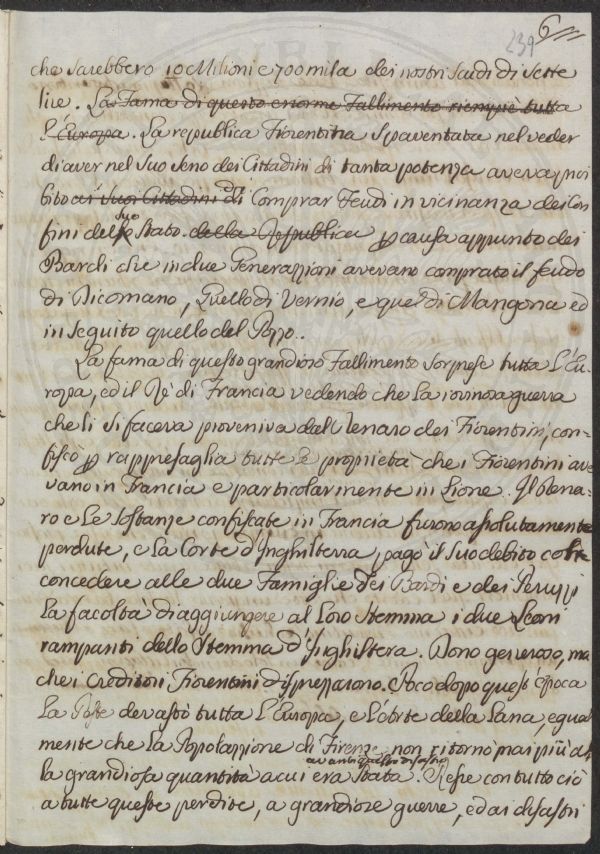 239 6
che sarebbero 10 Milioni e 700 mila dei nostri Scudi di Sette
lire. La Fama di questo enorme Fallimento riempiè tutta
l'Europa. La republica Fiorentina spaventata nel veder
di aver nel Suo Seno dei Cittadini di tanta potenza aveva proi
bito ai Suoi Cittadini di Comprar Feudi in vicinanza dei Con
fini del suo Stato della Republica p causa appunto dei
Bardi che in due Generazzioni avevano comprato il feudo
di Dicomano, Quello di Vernio, e quel di Mangona ed
in Seguito quello del Pozzo.
La fama di questo grandioso Fallimento Sorprese tutta L'Eu-
ropa, ed il Rè di Francia vedendo che La rovinosa guerra
che li Si faceva proveniva dall Denaro dei Fiorentini, con-
fiscò p rappresaglia tutte le proprietà che i Fiorentini ave
vano in Francia e particolarmente in Lione. Il Dena-
ro e Le Sostanze confiscate in Francia furono assolutamente
perdute, e La Corte d'Inghilterra pagò il Suo debito col
concedere alle due Famiglie dei Bardi e dei Peruzzi
La facoltà di aggiungere al Loro Stemma i due Leoni
rampanti dello Stemma d'Inghiltera. Dono generoso, ma
che i Creditori Fiorentini disprezzarono. Poco dopo quest'epoca
La Peste devastò tutta L'Europa, e L'Arte della Lana, egual
mente che La Popolazzione di Firenze non ritornò mai più al
avanti quel disastro
la grandiosa quantità a cui era Stata. Resse con tutto ciò
a tutte queste perdite, a grandiose guerre, ed ai disastri